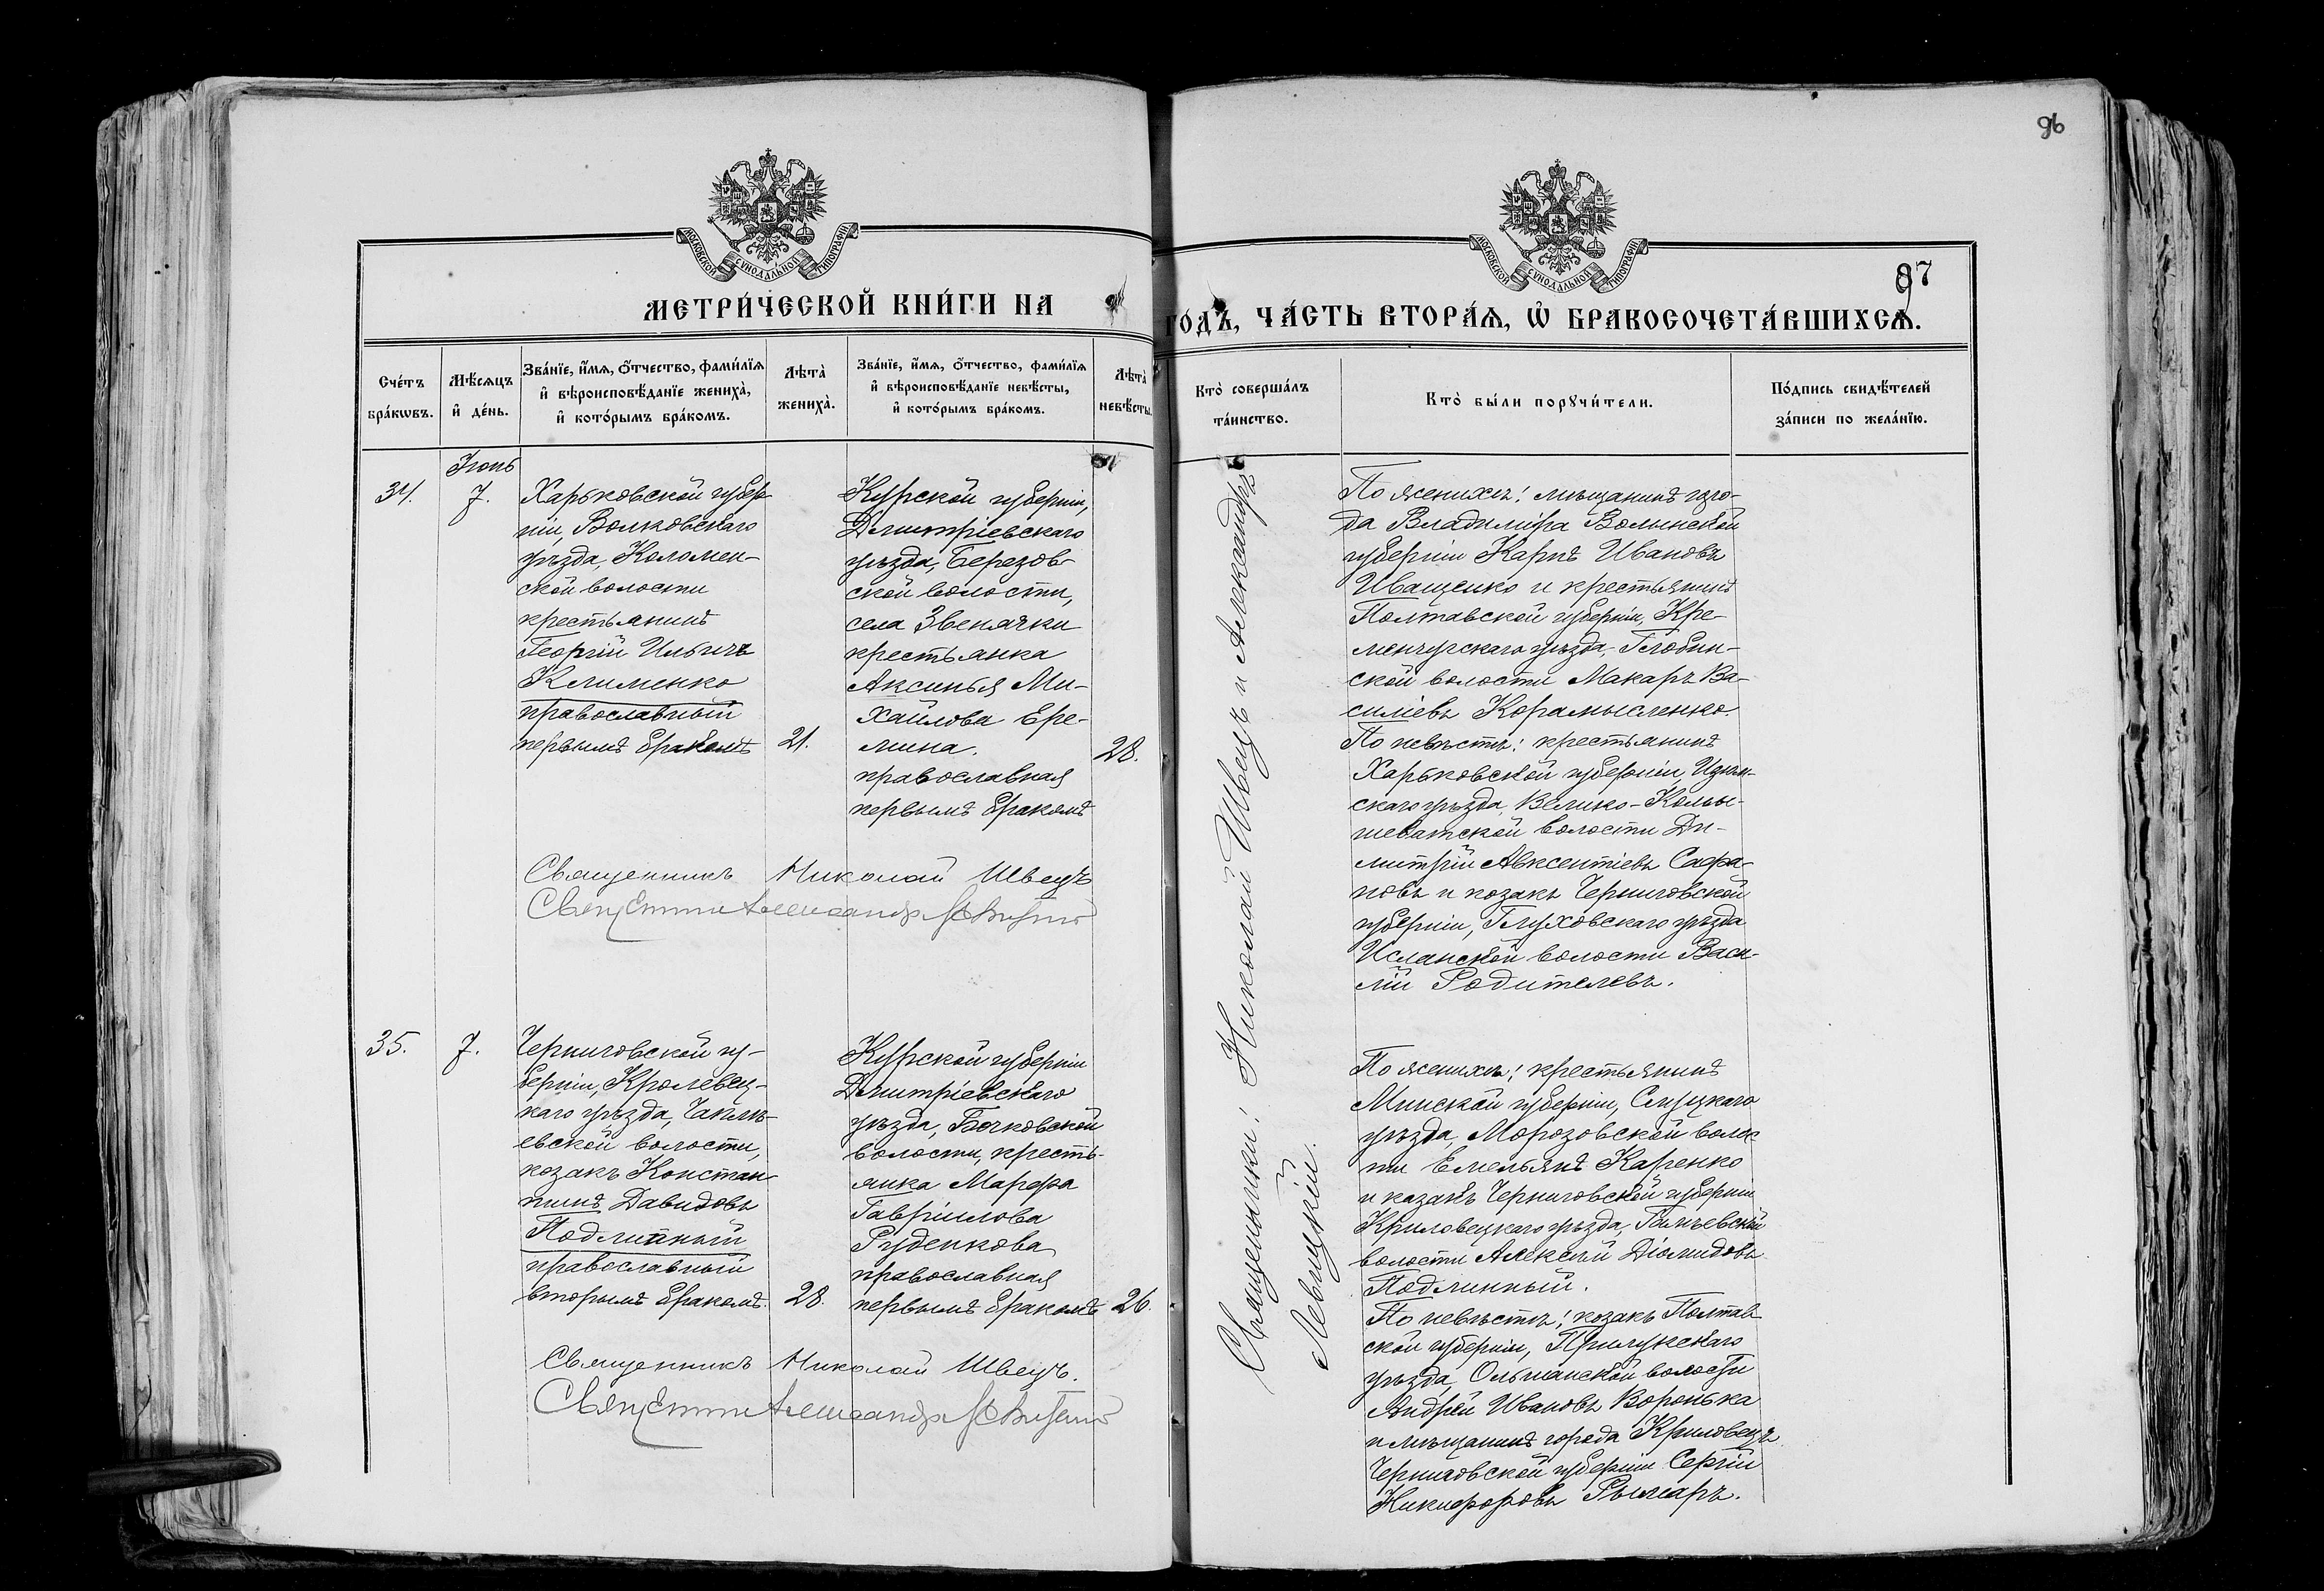 96
МОСКОВСКОЙ СУНОДАЛЬНОЙ ТИПОГРАФІИ
МОСКОВСКОЙ СУНОДАЛЬНОЙ ТИПОГРАФІИ
97
МЕТРИ́ЧЕСКОЙ КНИ́ГИ НА
ГОДЪ, ЧА́СТЬ ВТОРА́Ѧ, Ѽ БРАКОСОЧЕТА́ВШИХСѦ.
Сче́тъ бра́кѡвъ.
Мѣ́сѧцъ и҆ де́нь.
Зва́нїе, и҆́мѧ, ѻ҆́тчество, фами́лїѧ и҆ вѣроисповѣ́данїе жениха̀, и҆ кото́рымъ бра́комъ.
Лѣта̀ жениха̀.
Зва́нїе, и҆́мѧ, ѻ҆́тчество, фами́лїѧ и҆ вѣроисповѣ́данїе невѣ́сты, и҆ кото́рымъ бра́комъ.
Лѣта̀ невѣ́сты.
Кто̀ соверша́лъ та́инство.
Кто̀ бы́ли порꙋчи́тели.
По́дпись свидѣ́телей за́писи по жела́нїю.
Іюнь
34.
7.
Харьковской губер-
ніи, Волковскаго
уѣзда, Коломен-
ской волости
крестьянинъ
Георгій Ильичъ
Клименко
православный
первымъ бракомъ
21.
Курской губерніи,
Дмитріевскаго
уѣзда, Березов-
ской волости,
села Звенячки
крестьянка
Аксинья Ми-
хайлова Ере-
мина.
православная
первымъ бракомъ
28.
Священникъ Николай Швецъ
Священники: Николай Швецъ и Александръ
Левицкій.
По женихѣ: мѣщанинъ горо-
да Владиміра Волынской
губерніи Карпъ Ивановъ
Иващенко и крестьянинъ
Полтавской губерніи, Кре-
менчугскаго уѣзда, Глобин-
ской волости Макаръ Ва-
силіевъ Корамысленко.
По невѣстѣ: крестьянинъ
Харьковской губерніи, Изюм-
скаго уѣзда, Велико-Камы-
шеватской волости Ди-
митрій Авксентіевъ Сафо-
новъ и козакъ Черниговской
губерніи, Глуховскаго уѣзда
волости Васи-
лій Родителевъ.
35.
7.
Черниговской гу-
берніи, Кролевец-
каго уѣзда,
евской волости,
козакъ Констан-
тинъ Давидовъ
Подлинный
православный
вторымъ бракомъ.
28.
Курской губерніи
Дмитріевскаго
уѣзда, Бочковской
волости, кресть-
янка Марфа
Гавріилова
Руденкова
православная
первымъ бракомъ
26.
Священникъ Николай Швецъ.
По женихѣ: крестьянинъ
Минской губерніи, Слуцкаго
уѣзда, Морозовской волос-
ти Емельянъ Каренко
и казакъ Черниговской губерніи
Криловецкаго уѣзда,
волости Алексѣй Діомидовъ
Подлинный.
По невѣстѣ: козакъ Полтав-
ской губерніи, Прилукскаго
уѣзда, Ольшанской волости
Андрей Ивановъ Воронька
и мѣщанинъ города Криловецъ
Черниговской губерніи Сергій
Никифоровъ Рымаръ.